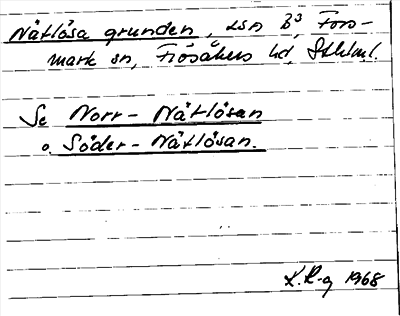 Nätlösa grunden, 
mark sn, Frösåkers hd, Sthlm l.
Se Norr-Nätlösan
o. Söder-Nätlösan.
1968